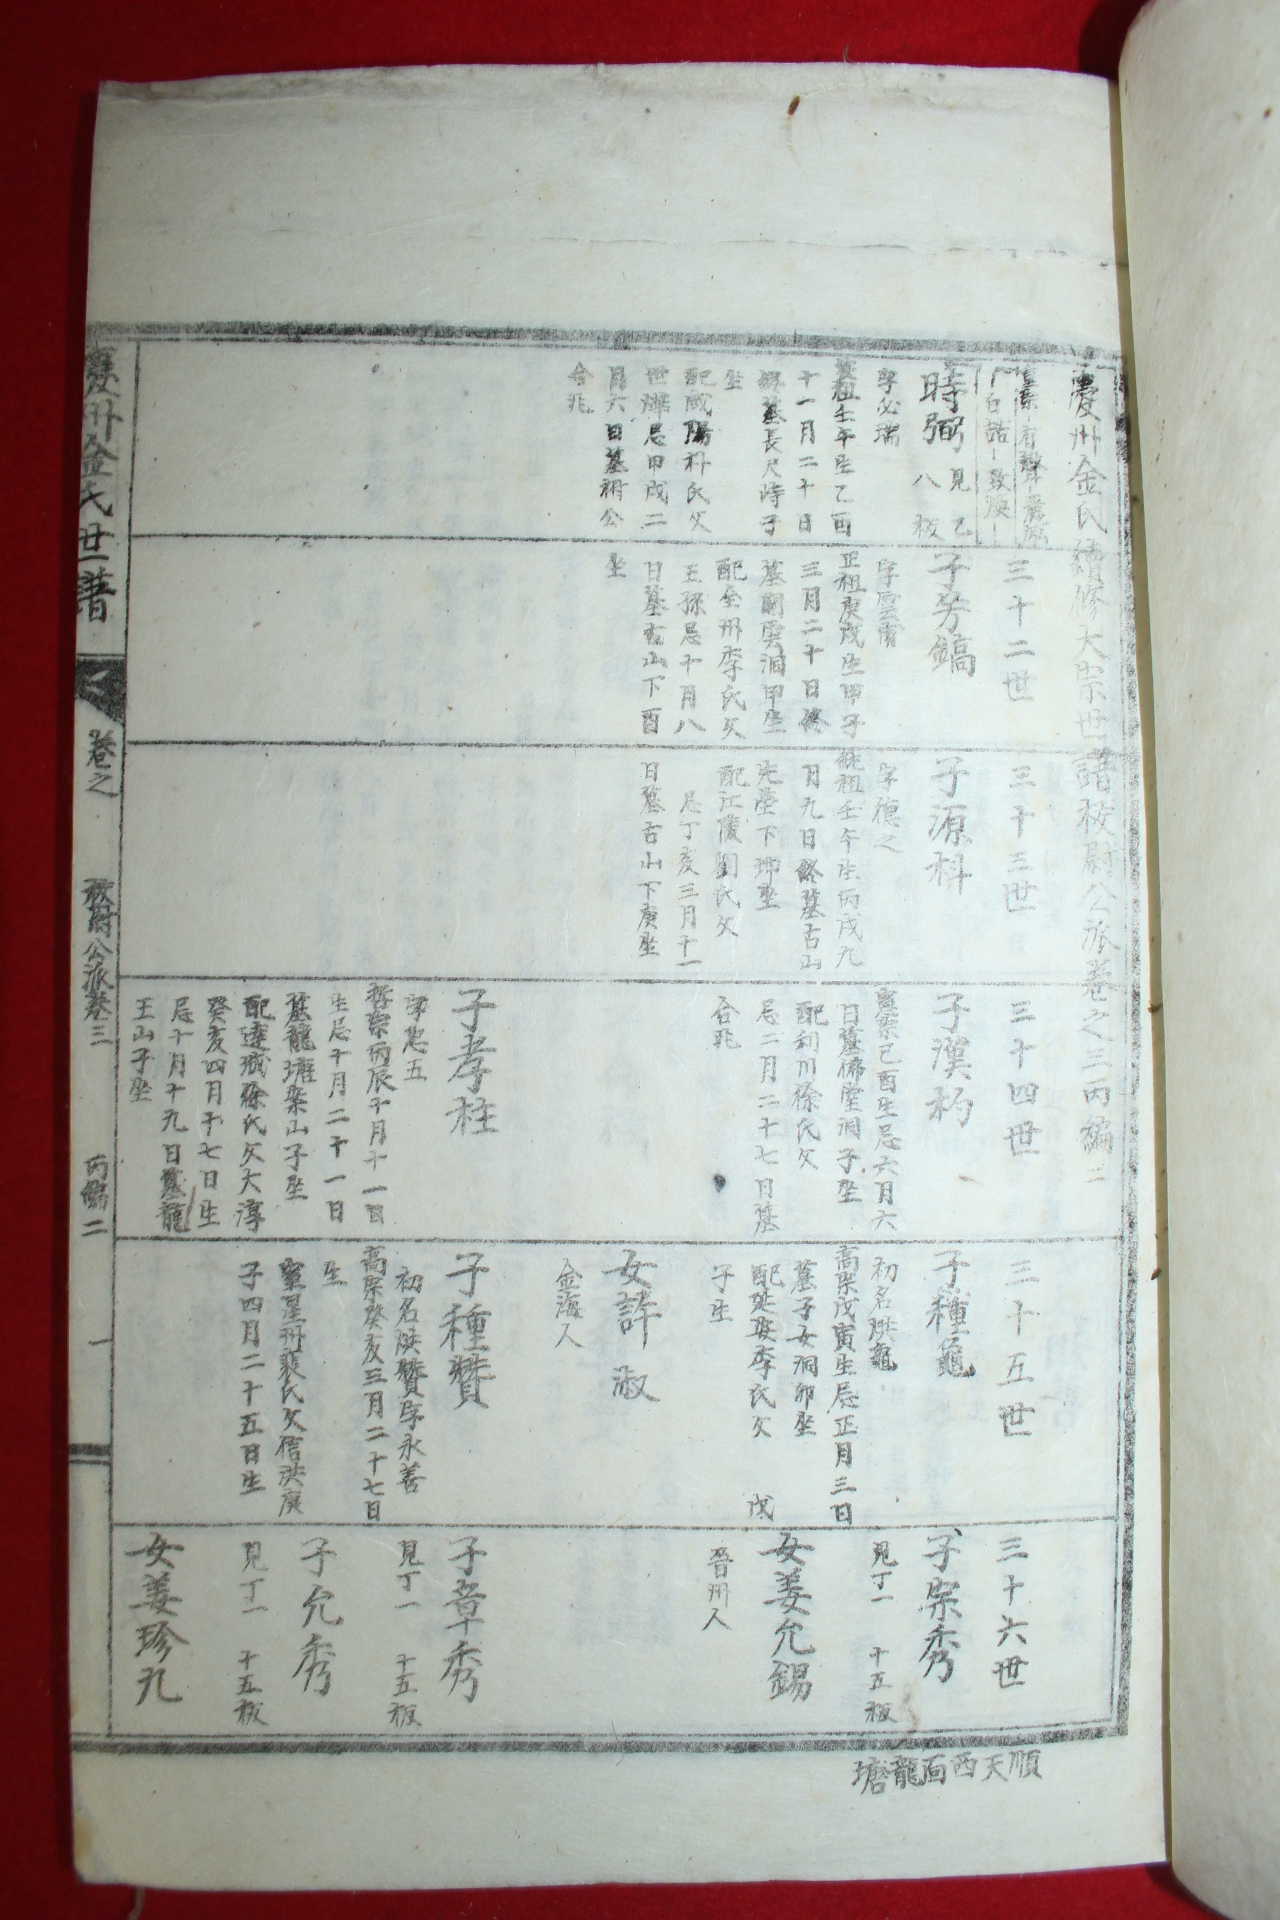 慶州金氏續修大宗世譜校尉公派卷之三丙編二
時弼
見乙
八板
字必瑞
英祖壬午生乙酉
十一月二十日
坐
配咸陽朴氏父
世燁忌甲戌二
月六日墓祔公
合兆
三十二世
子芳鎬
正祖庚戌生甲子
三月二十日終
墓開雲洞甲坐
配全州李氏父
玉孫忌十月八
日墓古山下酉
坐
三十三世
子源科
字德之
純祖壬午生丙戌九
月九日終墓古山
先塋下坤坐
配江陵劉氏父
忌丁亥三月十一
日墓古山下庚坐
三十四世
子漢杓
憲宗己酉生忌六月六
日墓佛堂洞子坐
配利川徐氏父
忌二月二十七日墓
合兆
子孝柱
字忠五
哲宗丙辰十月十一日
生忌十月二十一日
墓龍塘案山子坐
配達城徐氏父大淳
癸亥四月十七日生
忌十月十九日墓龍
王山子坐
三十五世
子種龜
初名洪龜
高宗戊寅生忌正月三日
墓子女洞卯坐
配延安李氏父 戊
子生
女許淑
金海人
子種贊
初名洪贊字永善
高宗癸亥三月二十七日
生
室星州裵氏父信洪庚
子四月二十五日生
三十六世
子宗秀
見丁一 十五板
女姜允錫
晉州人
子章秀
見丁一 十五板
子允秀
見丁一 十五板
女姜珍九
順天西面龍塘
慶州金氏世譜
卷之
校尉公派卷三
丙編二
一